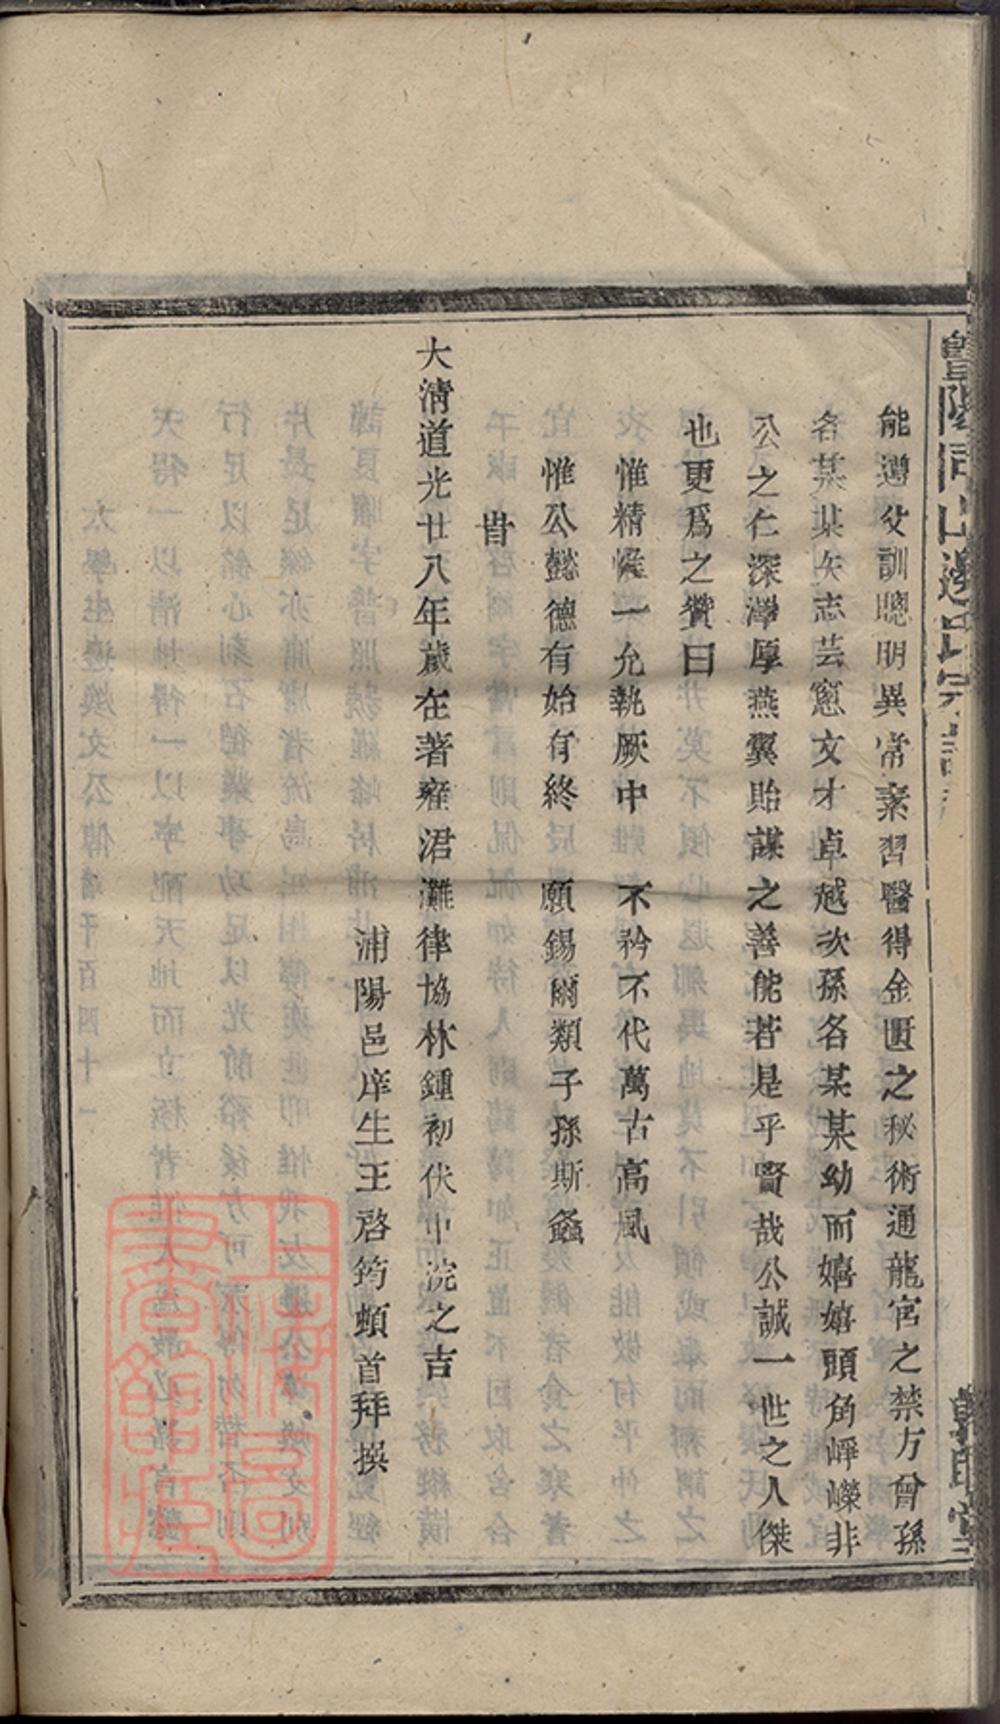 豐陽同山邊氏宗譜
能遵父訓聰明異常素習醫得金匱之秘術通龍宮之禁方曾孫
名某某矢志芸窓文才卓越次孫名某某幼而嬉嬉頭角崢嶸非
公之仁深澤厚燕翼貽謀之善能若是乎賢哉公誠一世之人傑
也更爲之贊曰
惟精惟一允執厥中 不矜不代萬古高風
惟公懿德有始有終 願錫爾類子孫斯螽
旹
大清道光廿八年歲在著雍涒灘律協林鍾初伏中浣之吉
浦陽邑庠生王啓筠頓首拜撰
上海圖書館藏